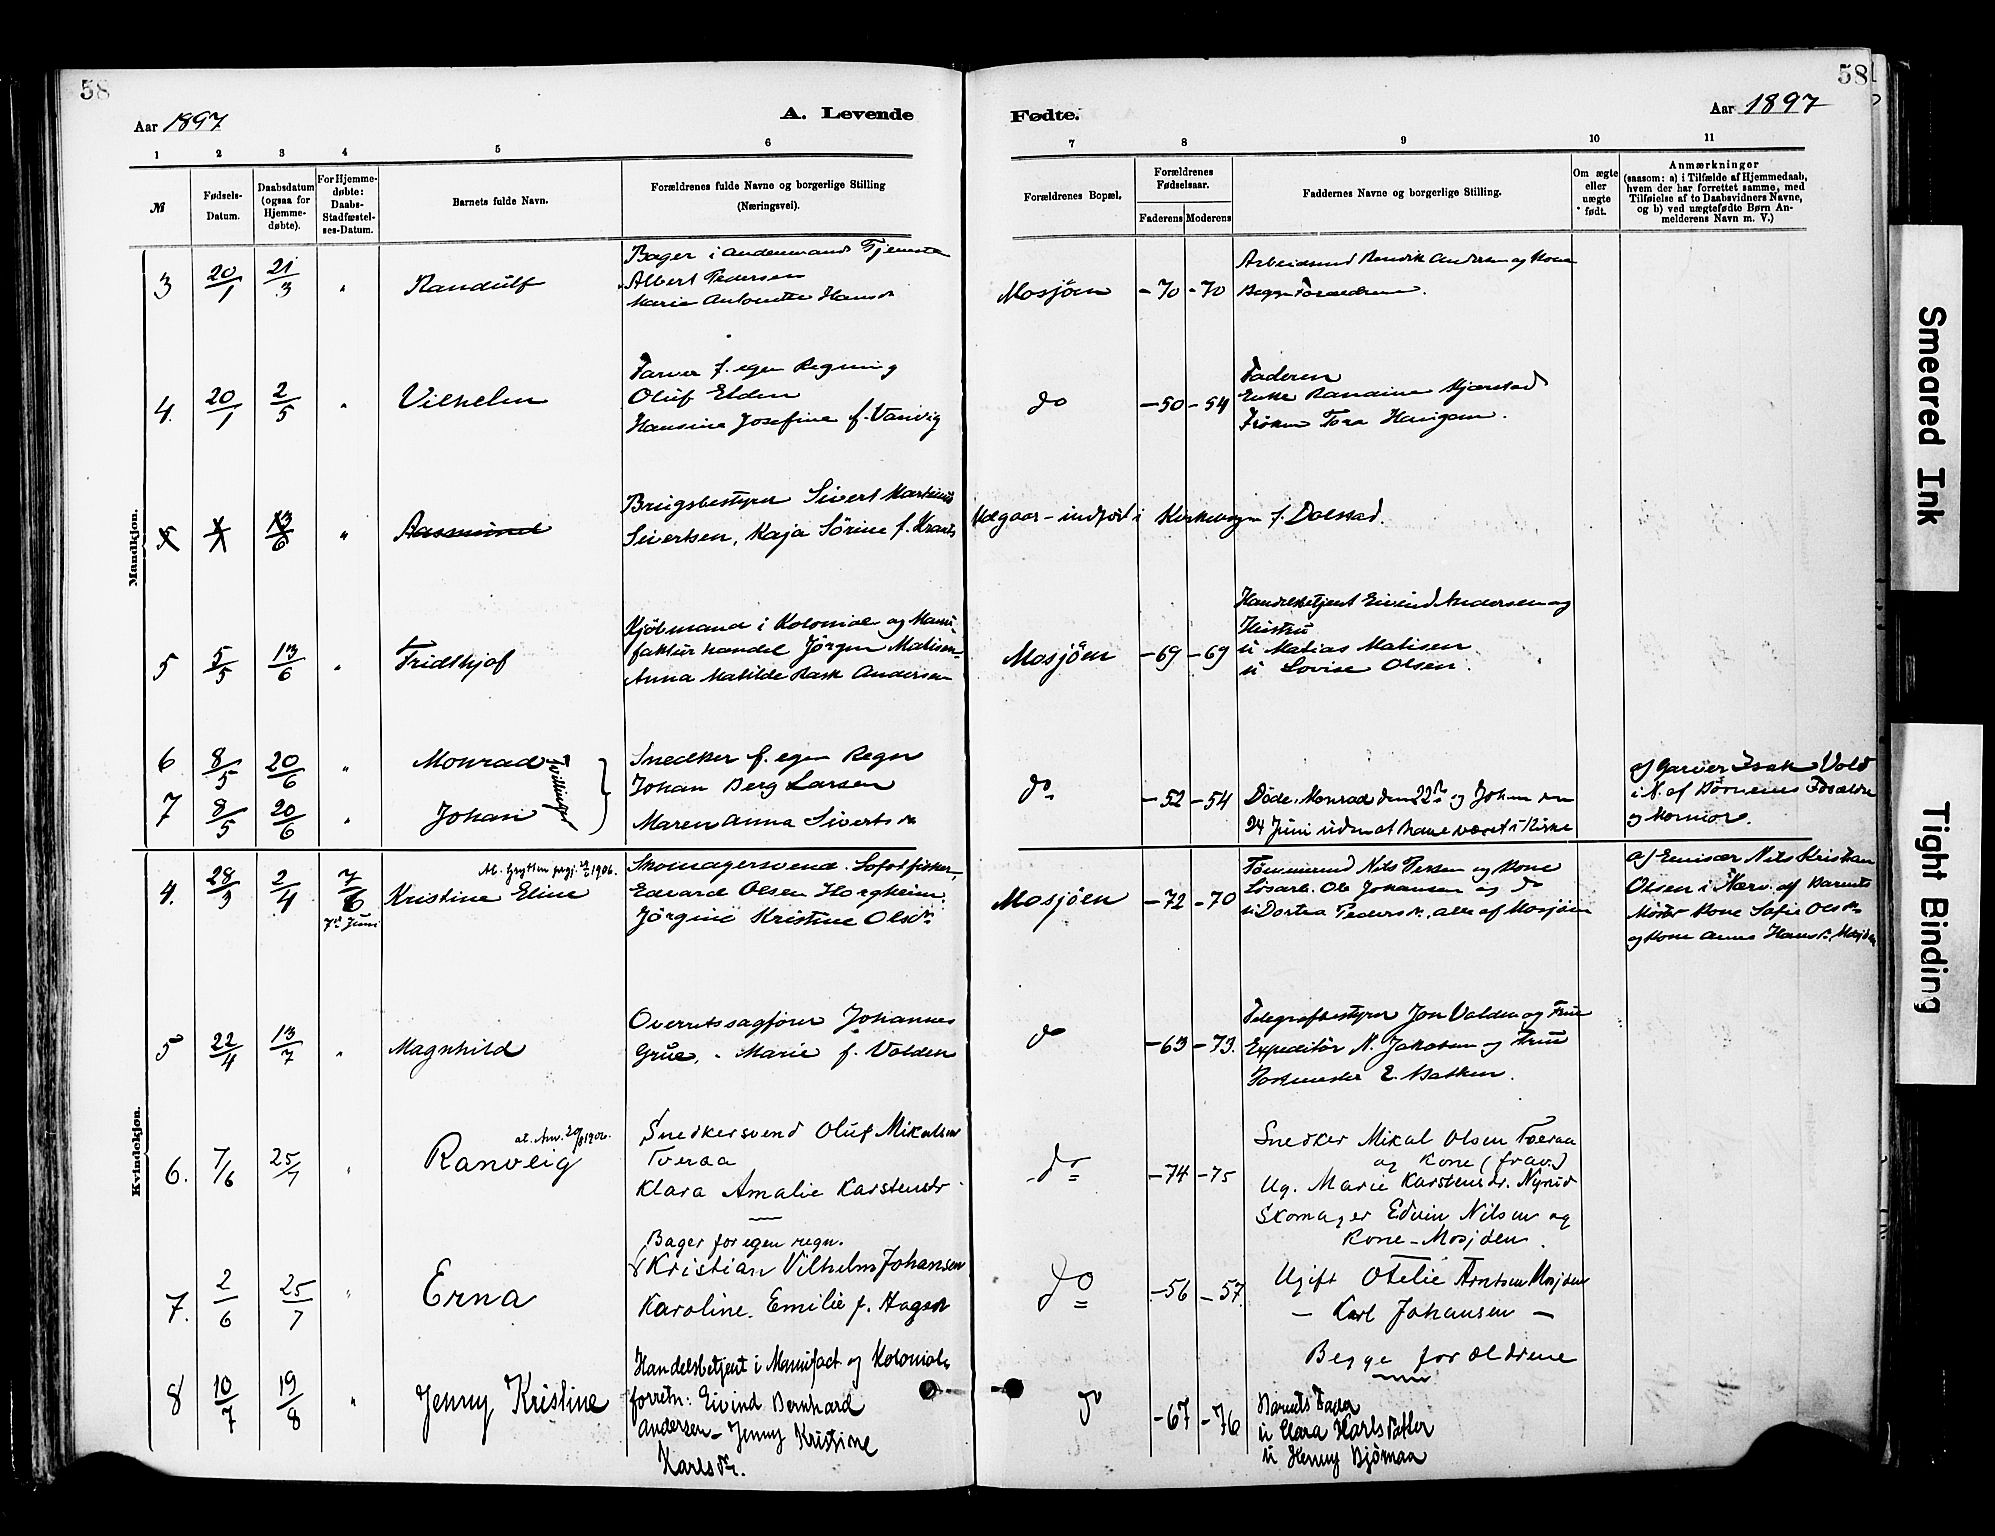 58
58
Aar 1897
A. Levende
Fødte.
Aar 1897
1 2 3 4 5 6 7 8 9 10 11
№
Fødsels-
Datum.
Daabsdatum
(ogsaa for
Hjemme-
døbte).
For Hjemme-
døbte:
Daabs-
Stadfæstel-
ses-Datum.
Barnets fulde Navn.
Forældrenes fulde Navne og borgerlige Stilling
(Næringsvei).
Forældrenes Bopæl.
Forældrenes
Fødselsaar.
Faderens Moderens
Faddernes Navne og borgerlige Stilling.
Om ægte
eller
uægte
født.
Anmærkninger
(saasom: a) i Tilfælde af Hjemmedaab,
hvem der har forrettet samme, med
Tilføielse af to Daabsvidners Navne,
og b) ved uægtefødte Børn An-
melderens Navn m. V.)
Mandkjøn.
3 20/1 21/3 " Randulf
Bager i andenmands Tjeneste
Albert Pedersen
Marie Antonette Hansdr
Mosjöen -70 -70
Arbeidsmd Andersen og Kone
Begge Forældrene.
4. 20/1 2/5 " Vilhelm
Farver f. egen Regning
Oluf Elden
Hansine Josefine f. Vanvig
do -50 -54
Faderen
Enke Kjærstad
Frøken Tora
5 13/6 " Aasmund
Brugsbestyrer Sivert Martinus
Sivertsen, Kaja Sörine f.
indført i Kirkebogen f. Dolstad.
5 5/5 13/6 " Fridthjof
Kjöbmand i Kolonial og Manu-
fakturhandel Jörgen Matisen
Anna Matilde Rask Andersen
Mosjöen -69 -69
Handelsbetjent Eivind Andersen og
Hustru
u Matias Matisen
u Lovise Olsen.
6 8/5 20/6 " Monrad
7 8/5 20/6 " Johan
Tvillinger
Snedker f. egen Regn
Johan Berg Larsen
Maren Anna Sivertsdr
do -52 -54
Døde, Monrad den 22de og Johan den
24 Juni uden at have været i Kirke
af Garver Isak Vold
i N. af Børnenes Forældre
og Mormor.
Kvindekjøn.
4. 28/3 2/4 7/6 7de Juni Kristine Eline
1906.
Skomagersvend. Lofotfisker,
Edvard Olsen Horgheim.
Jörgine Kristine Olsdr
Mosjöen -72 -70
Tömmermd Nils og Kone
Løsarb. Ole Johansen og do
u Dortea Pedersdr. alle af Mosjöen
af Emisær Nils Kristian
Olsen i Nærv. af Barnets
Moster Kone Sofie Olsdr
og Kone Anne Hansdr. Mosjöen
5 22/4 13/7 " Magnhild
Overretssagförer Johannes
Grue, - Marie f. Volden
do -63 -73.
Telegrafbestyrer Jon Volden og Frue
Expeditör N. Jakobsen og Frue
Postmester E.
6. 7/6 25/7 " Ranveig
1906.
Snedkersvend Oluf Mikalsen
Tveraa
Klara Amalie Karstensdr
do -74 -75
Snedker Mikal Olsen Tveraa
og Kone (frav.)
Ug. Marie Karstensdr. Nyrud
Skomager Edvin Nilsen og
Kone - Mosjöen.
7. 2/6 25/7 " Erna
Bager for egen regn.
Kristian Vilhelm Johansen
Karoline Emilie f.
do -56 -57.
Ugift Otelie Arntsen Mosjöen
- Karl Johansen -
Begge forældrene
8 10/7 19/8 " Jenny Kristine
Handelsbetjent i Manufact og Kolonial-
forretn: Eivind Bernhard
Andersen - Jenny Kristine
Karlsdtr.
do -67 -76
Barnets Fader
u Clara Karlsdatter
u Henny Bjørnaa
Smeared Ink
Tight Binding